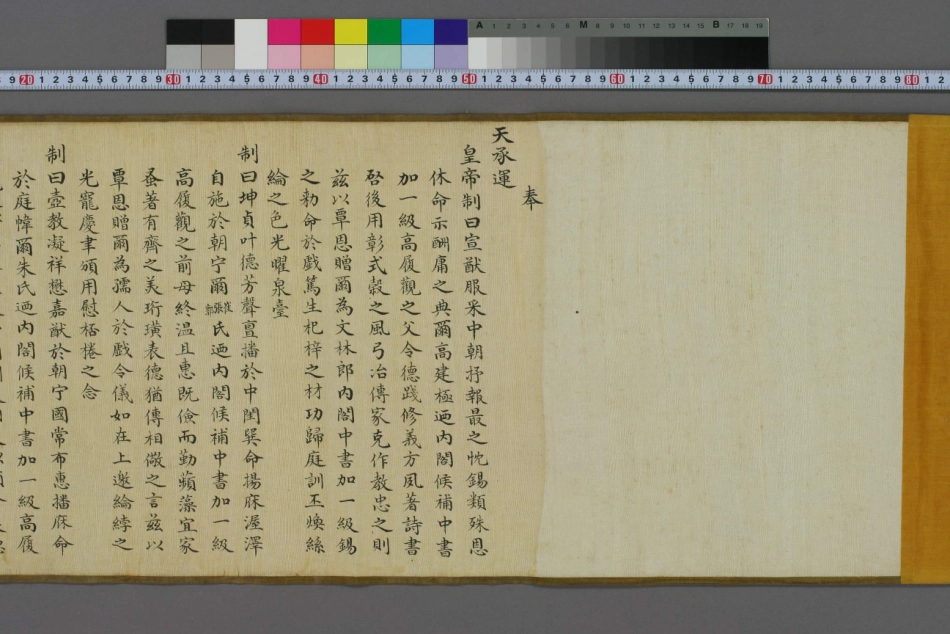 A 1 2 3 4 5 6 M 8 9 10 11 12 13 14 15 B 17 18 19
9 20 1 2 3 4 5 6 7 8 9 30 1 2 3 4 5 6 7 8 9 40 1 2 3 4 5 6 7 8 9 50 1 2 3 4 5 6 7 8 9 60 1 2 3 4 5 6 7 8 9 70 1 2 3 4 5 6 7 8 9 80 1 2
奉
天承運
皇帝制曰宣猷服采中朝抒報最之忱錫類殊恩
休命示酬庸之典爾高建極迺內閣候補中書
加一級高履觀之父令德踐修義方夙著詩書
啓後用彰式穀之風弓冶傳家克作教忠之則
茲以覃恩贈爾為文林郎內閣中書加一級錫
之勑命於戲篤生杞梓之材功歸庭訓丕煥絲
綸之色光曜泉臺
制曰坤貞叶德芳聲亶播於中閨巽命揚庥渥澤
自施於朝宁爾崔張郭氏迺內閣候補中書加一級
高履觀之前母終温且惠既儉而勤蘋藻宜家
蚤著有齊之美珩璜表德猶傳相儆之言茲以
覃恩贈爾為孺人於戲令儀如在上邀綸綍之
光寵慶聿頒用慰桮棬之念
制曰壼教凝祥懋嘉猷於朝宁國常布惠播庥命
於庭幃爾朱氏迺內閣候補中書加一級高履